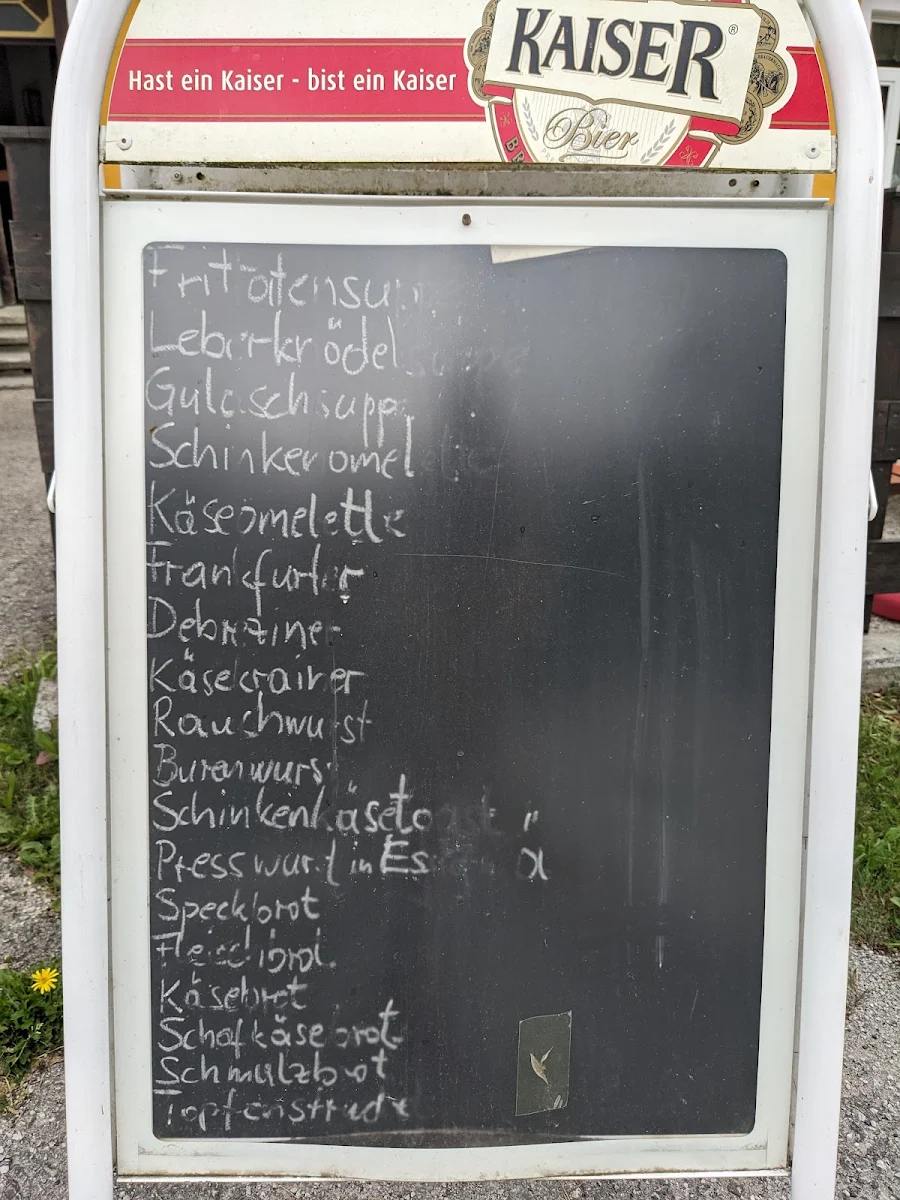 Hast ein Kaiser - bist ein Kaiser
KAISER®
Bier
Frittatensupp
Leberknödelsuppe
Gulaschsuppe
Schinkenomelette
Käseomelette
Frankfurter
Debreziner
Käsekrainer
Rauchwurst
Burenwurst
Schinkenkäsetoast
Presswurst in Essig Öl
Speckbrot
Fleischbrot
Käsebrot
Schafkäsebrot
Schmalzbrot
Topfenstrudel